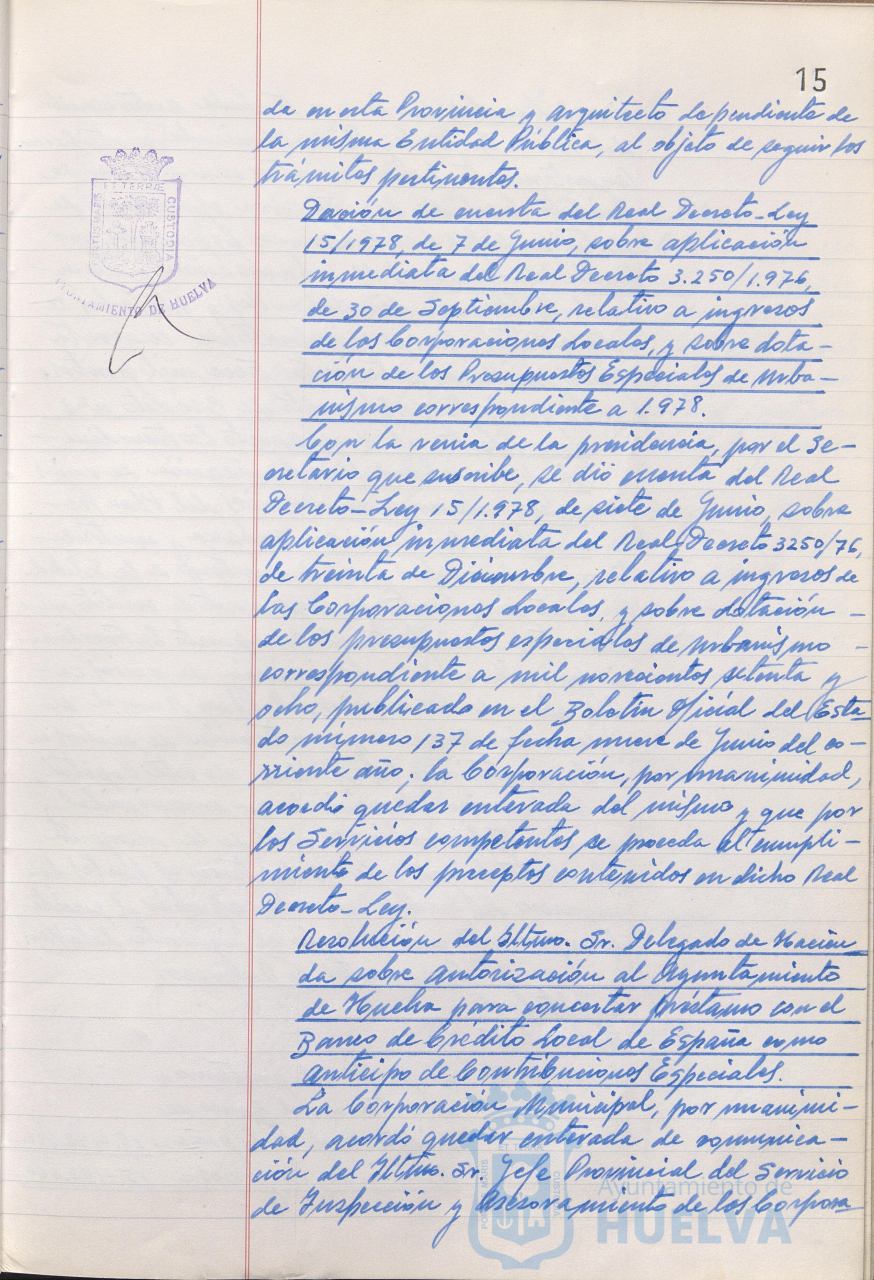 15
da en esta Provincia y Arquitecto dependiente de
la misma Entidad Pública, al objeto de seguir los
trámites pertinentes.
Dación de cuenta del Real Decreto-Ley
15/1978, de 7 de Junio, sobre aplicación
inmediata del Real Decreto 3.250/1.976,
de 30 de Septiembre, relativo a ingresos
de las Corporaciones Locales, y sobre dota-
ción de los Presupuestos Especiales de Urba-
nismo correspondiente a 1.978.
Con la venia de la presidencia, por el Se-
cretario que suscribe, se dió cuenta del Real
Decreto-Ley 15/1.978, de siete de Junio, sobre
aplicación inmediata del Real Decreto 3250/76,
de treinta de Diciembre, relativo a ingresos de
las Corporaciones Locales, y sobre dotación -
de los presupuestos especiales de urbanismo -
correspondiente a mil novecientos setenta y
ocho, publicado en el Boletín Oficial del Esta-
do número 137 de fecha nueve de Junio del co-
rriente año; la Corporación, por unanimidad,
acordó quedar enterada del mismo y que por
los Servicios competentes se proceda al cumpli-
miento de los preceptos contenidos en dicho Real
Decreto-Ley.
Resolución del Iltmo. Sr. Delegado de Hacien
da sobre autorización al Ayuntamiento
de Huelva para concertar préstamo con el
Banco de Crédito Local de España como
anticipo de Contribuciones Especiales.
La Corporación Municipal, por unanimi-
dad, acordó quedar enterada de comunica-
ción del Iltmo. Sr. Jefe Provincial del Servicio
de Inspección y Asesoramiento de las Corpora
ET TERRÆ
PORTUS MARIS
CUSTODIA
AYUNTAMIENTO DE HUELVA
Ayuntamiento de
HUELVA